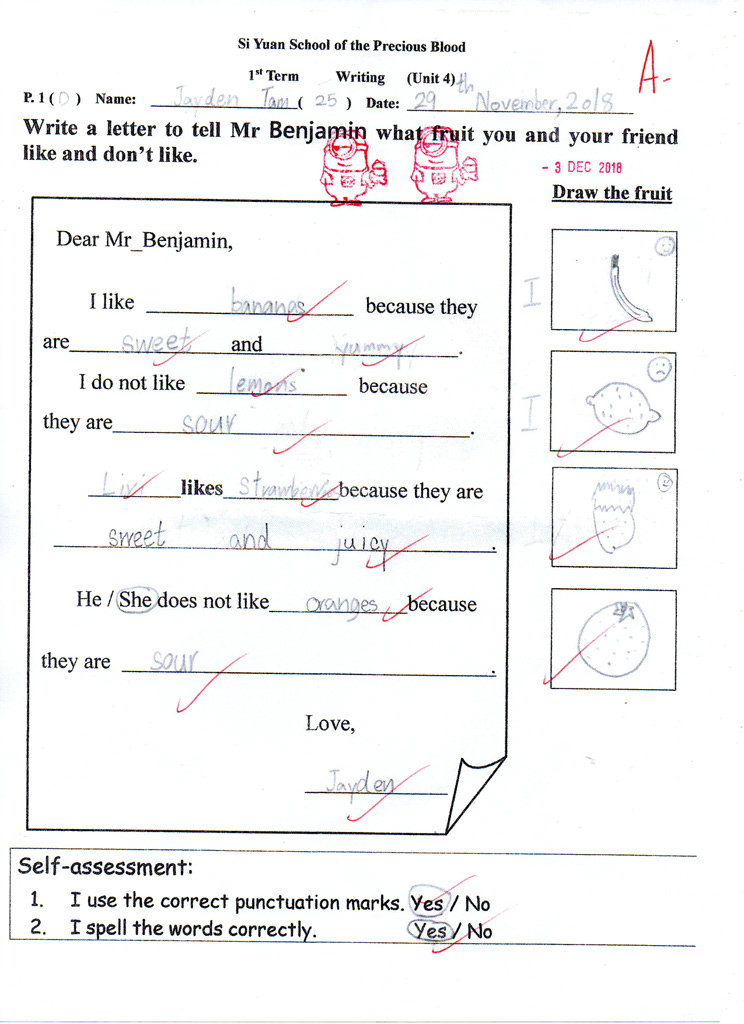 Si Yuan School of the Precious Blood
A-
1st Term Writing (Unit 4)
P. 1 ( D ) Name: Jayden Tam ( 25 ) Date: 29th November, 2018
Write a letter to tell Mr Benjamin what fruit you and your friend
like and don't like.
- 3 DEC 2018
Draw the fruit
Dear Mr_Benjamin,
I like bananas because they
I
are sweet and yummy.
I do not like lemons because
I
they are sour.
Livi likes strawberries because they are
sweet and juicy.
He / She does not like oranges because
they are sour.
Love,
Jayden
Self-assessment:
1. I use the correct punctuation marks. Yes / No
2. I spell the words correctly. Yes / No